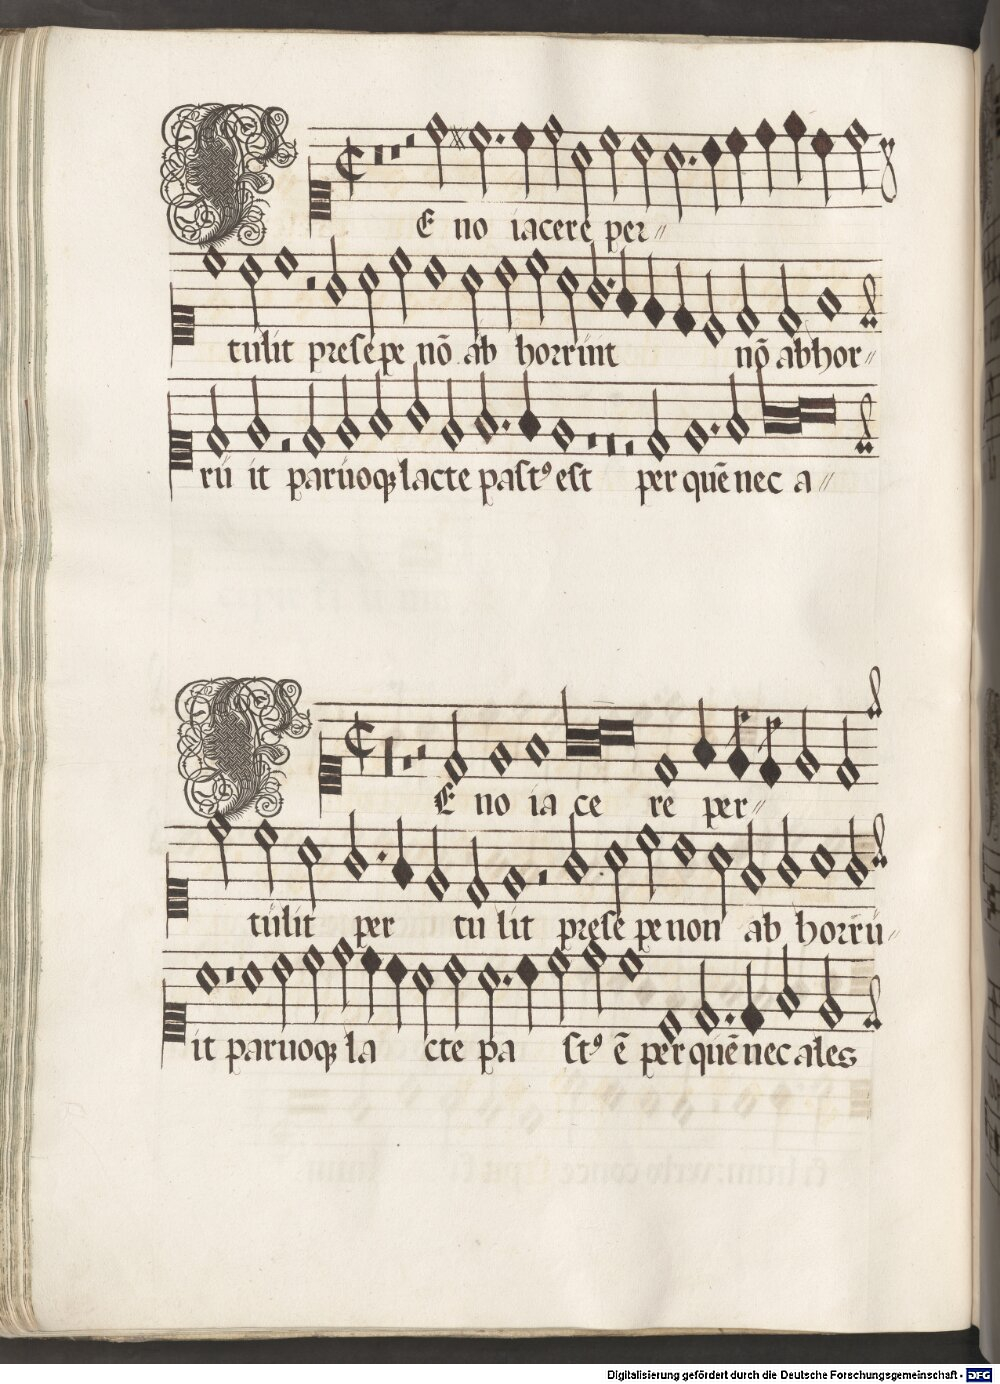 FE no iacere per〃
tulit presepe nō ab horruit nō abhor〃
ru it paruoqȝ lacte pastꝰ est per quē nec a〃
FE no ia ce re per〃
tulit per tu lit prese pe non ab horru〃
it paruoqȝ la cte pa stꝰ ē per quē nec ales
Digitalisierung gefördert durch die Deutsche Forschungsgemeinschaft - DFG